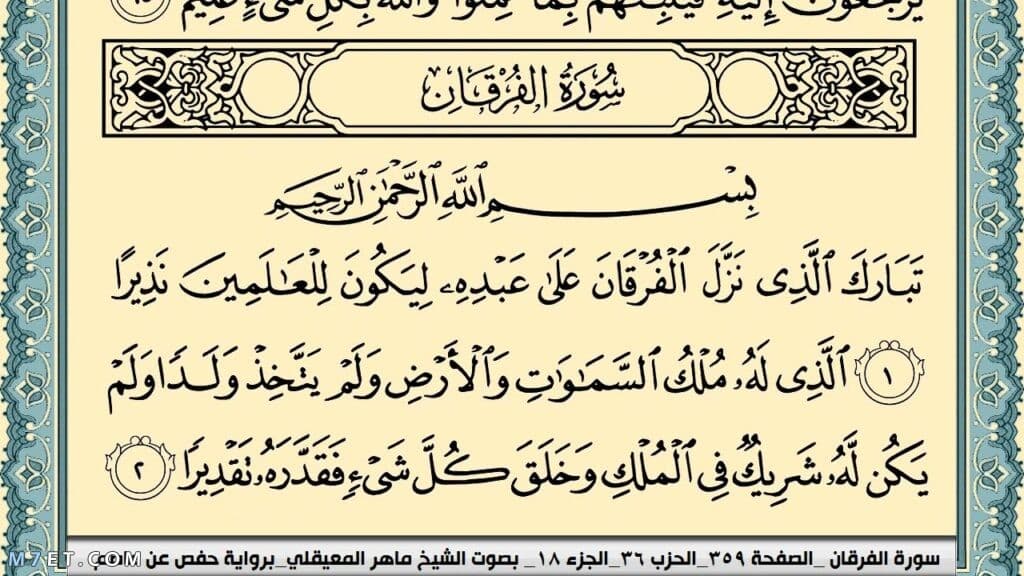 يُرْجَعُونَ إِلَيْهِ فَيُنَبِّئُهُم بِمَا عَمِلُوا۟ وَٱللَّهُ بِكُلِّ شَىْءٍ عَلِيمٌۢ
سُورَةُ الفُرْقَانِ
بِسْمِ ٱللَّهِ ٱلرَّحْمَٰنِ ٱلرَّحِيمِ
تَبَارَكَ ٱلَّذِى نَزَّلَ ٱلْفُرْقَانَ عَلَىٰ عَبْدِهِۦ لِيَكُونَ لِلْعَٰلَمِينَ نَذِيرًا
١ ٱلَّذِى لَهُۥ مُلْكُ ٱلسَّمَٰوَٰتِ وَٱلْأَرْضِ وَلَمْ يَتَّخِذْ وَلَدًا وَلَمْ
يَكُن لَّهُۥ شَرِيكٌ فِى ٱلْمُلْكِ وَخَلَقَ كُلَّ شَىْءٍ فَقَدَّرَهُۥ تَقْدِيرًا ٢
سورة الفرقان _الصفحة ٣٥٩_الحزب ٣٦_الجزء ١٨_ بصوت الشيخ ماهر المعيقلي_برواية حفص عن
M7ET.COM